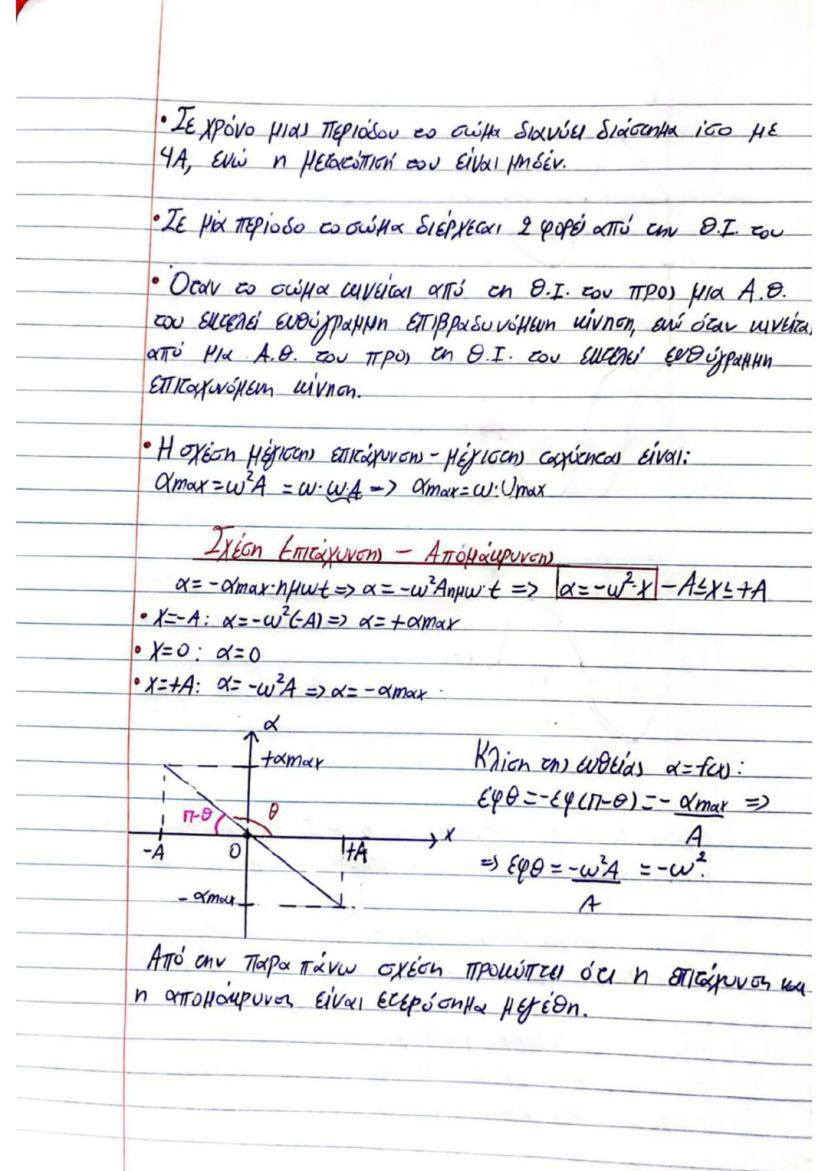 • Σε χρόνο μιας περιόδου το σώμα διανύει διάστημα ίσο με
4A, ενώ η μετατόπισή του είναι μηδέν.
• Σε μία περίοδο το σώμα διέρχεται 2 φορές από την Θ.Ι. του
• Όταν το σώμα κινείται από τη Θ.Ι. του προς μια Α.Θ.
του εκτελεί ευθύγραμμη επιβραδυνόμενη κίνηση, ενώ όταν κινείται
από μια Α.Θ. του προς τη Θ.Ι. του εκτελεί ευθύγραμμη
επιταχυνόμενη κίνηση.
• Η σχέση μέγιστης επιτάχυνσης - μέγιστης ταχύτητας είναι:
αmax=ω²A = ω·ω·A => αmax=ω·υmax
Σχέση Επιτάχυνσης - Απομάκρυνσης
α=-αmax·ημωt => α=-ω²Aημω·t => α=-ω²·x -A≤x≤+A
• x=-A: α=-ω²(-A) => α=+αmax
• x=0: α=0
• x=+A: α=-ω²A => α=-αmax.
α
+αmax
π-θ θ
-A 0 +A x
-αmax
Κλίση της ευθείας α=f(x):
εφθ=-εφ(π-θ)=-αmax/A =>
=> εφθ=-ω²A/A =-ω².
Από την παραπάνω σχέση προκύπτει ότι η επιτάχυνση και
η απομάκρυνση είναι ετερόσημα μεγέθη.